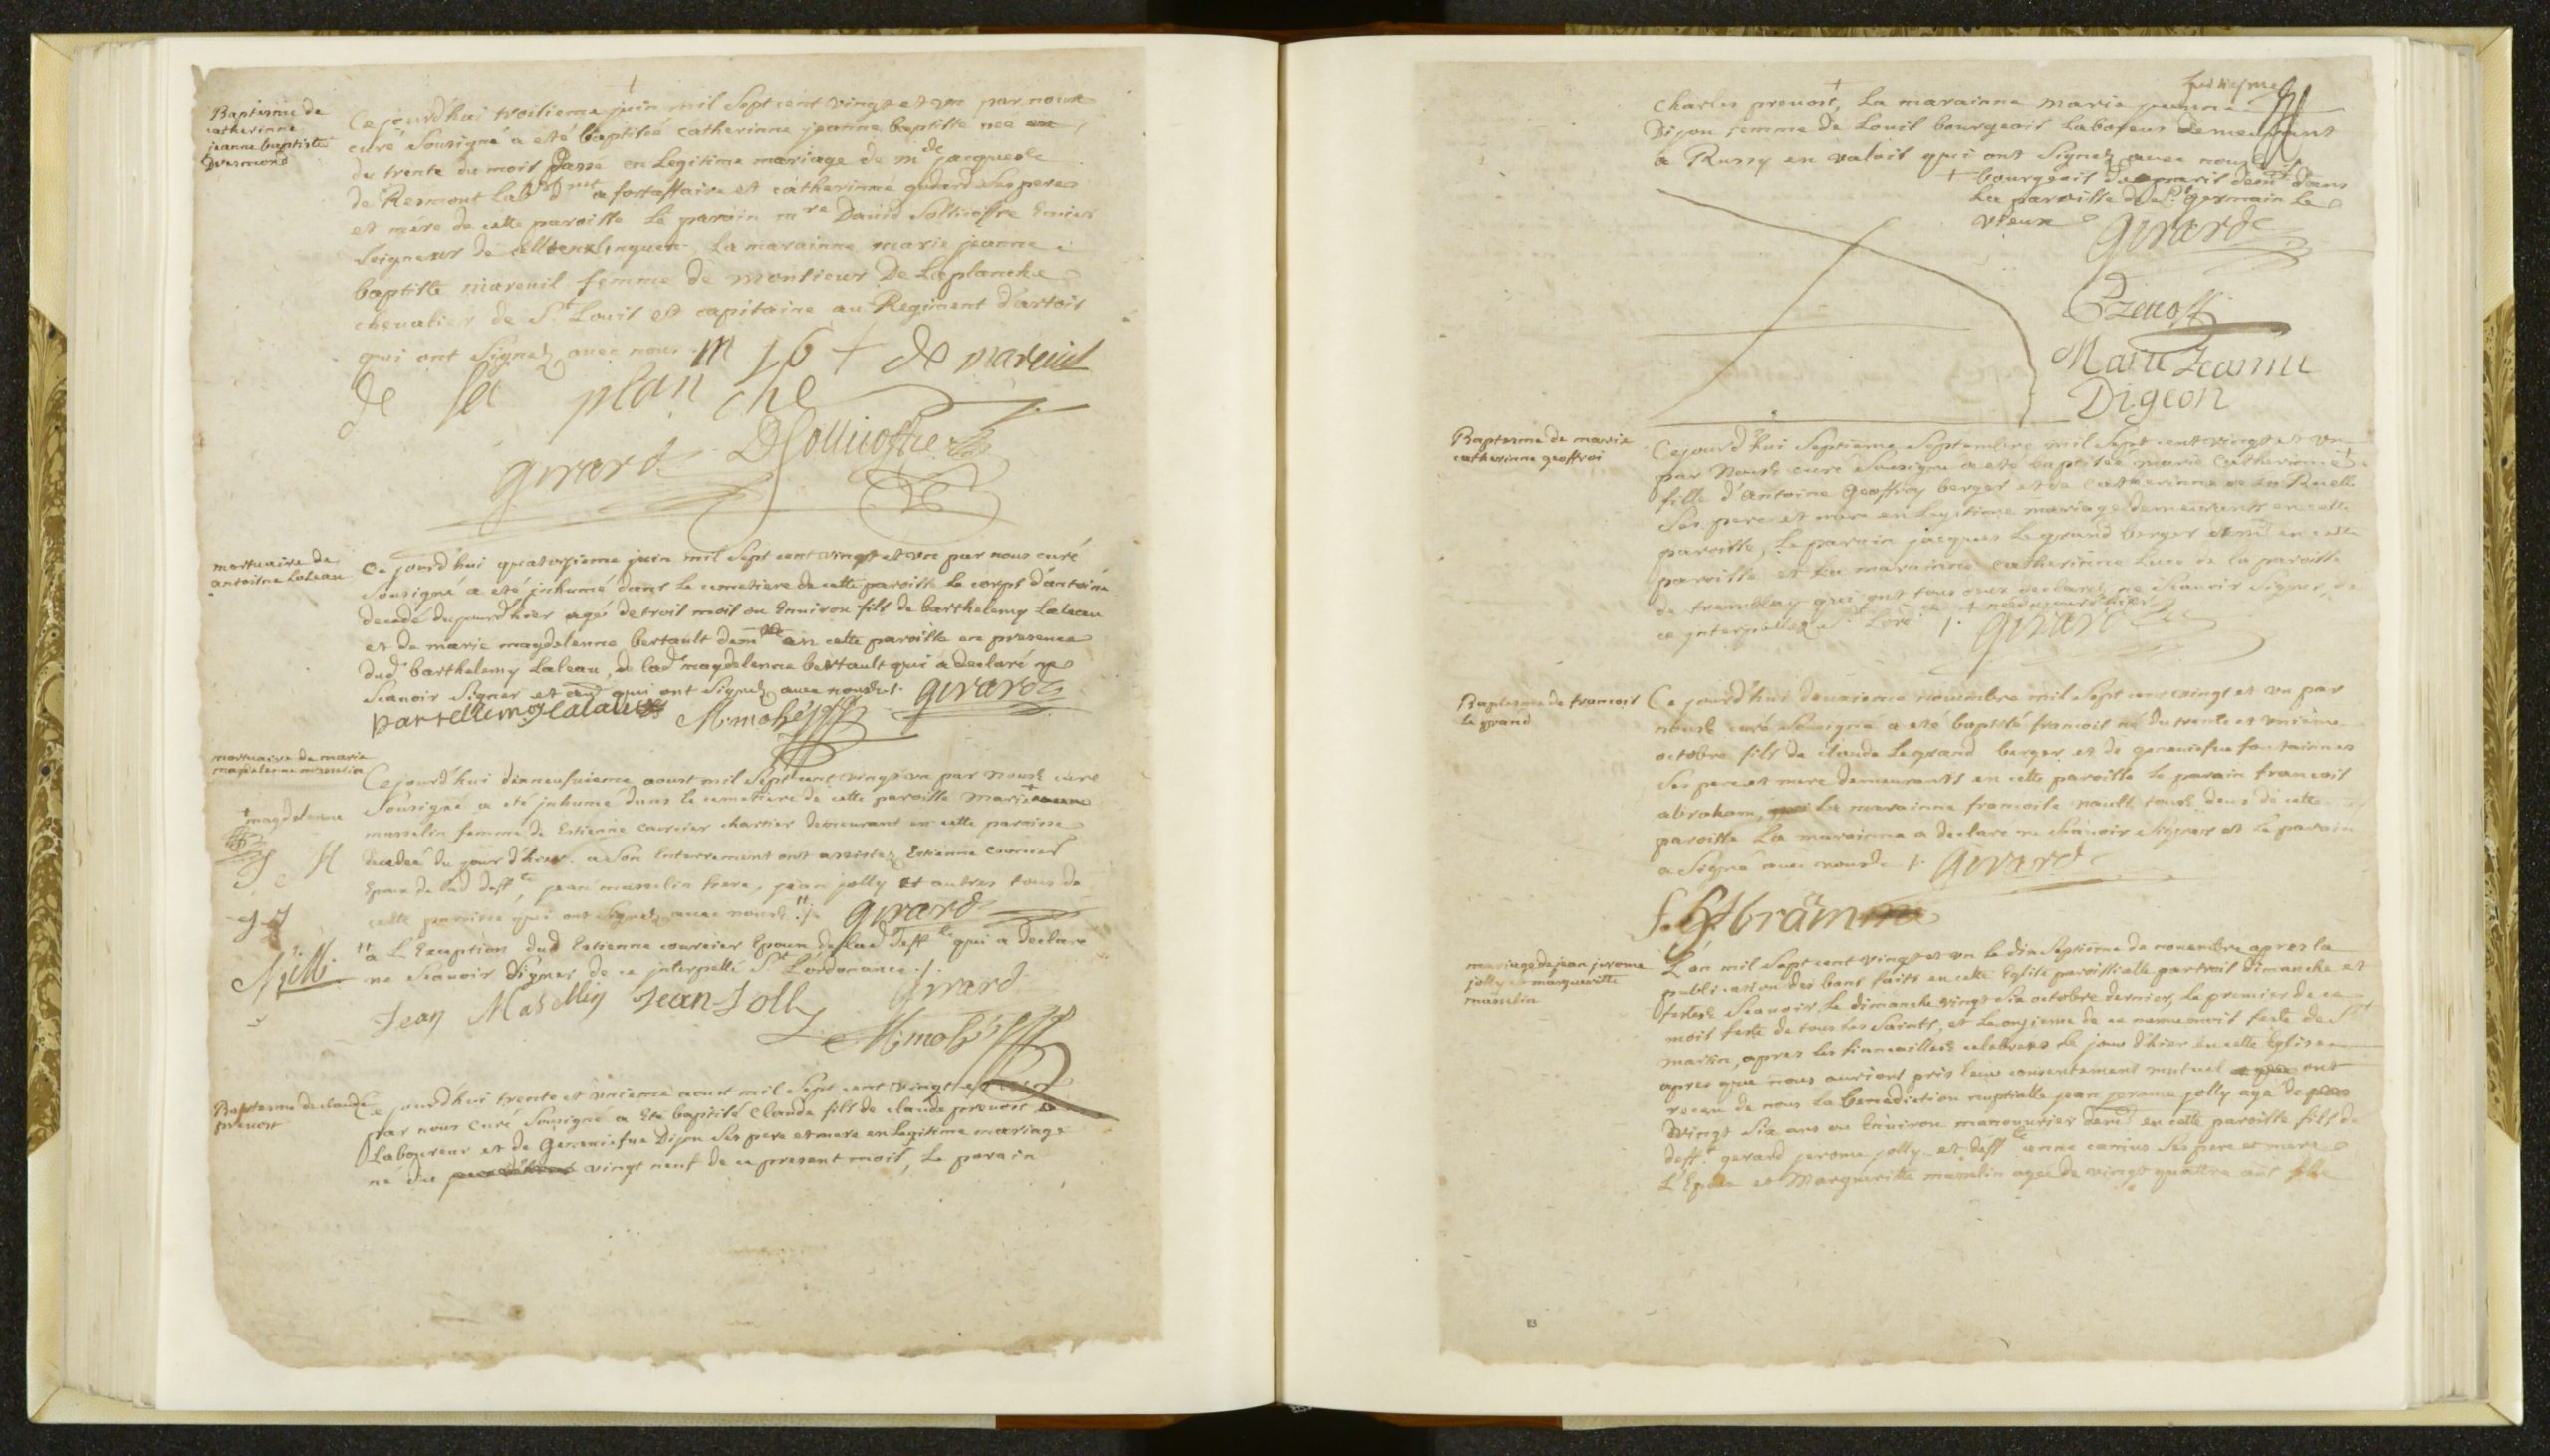 Baptesme de
catherinne
jeanne baptiste
Dresmond
Ce jourd'hui troisieme juin mil Sept cent vingt et vn par nous
curé Sousigné a été baptisée catherinne jeanne baptiste née
du trente du mois passé en Legitime mariage de mr jacques
de Resmont lab a fortaffaire et catherinne godard Ses peres
et mère de cette paroisse Le parain mre David Sollicoffre Ecuier
Seigneur de La marainne marie jeanne
baptiste mareuil femme de monsieur De Laplanche
chevalier de St Louis et capitaine au Regiment d'artois
qui ont Signez avec nous m j b + de mareuil
de la plan che
girard DSollicoffre
mortuaire de
antoine Laleau
Ce jourd'hui quatorzieme juin mil Sept cent vingt et vn par nous curé
Sousigné a été jnhumé dans le cimetiere de cette paroisse le corps d'antoine
decedé du jourd'hier agé de trois mois ou Enuiron fils de barthelemy Laleau
et de marie magdelenne bertault demts en cette paroisse en presence
dud barthelemy Laleau, de lad magdelenne bertault qui a declaré ne
Scauoir Signer et qui ont Signez avec nous ./. girard
bartellemy lalau M. mohé
mortuaire de marie
magdelenne masselin
Ce jourd'hui dixneufuieme aoust mil Sept cent vingt vn par nous curé
Sousigné a été jnhumé dans le cimetiere de cette paroisse Marie +
+ magdelenne
masselin femme de Estienne courcier chartier demeurant en cette paroisse
decedeé du jour d'hier. a Son Enterrement ont assistez Estienne courcier
Epoux de lad deffte, jean masselin frere, jean jolly et autres tous de
cette paroisse qui ont Signez avec nous ./. girard
a L'Exception dud Estienne courcier Epoux de lad deffte qui a declaré
ne Scauoir Signer de ce jnterpellé St L'ordonance ./.
girard
Jean Masellin Jean Jolly
M. mohé
Baptesme de claude
prevost
Ce jourd'hui trente et vnieme aout mil Sept cent vingt et vn
par nous Curé Sousigné a Eté baptisé Claude fils de claude prevost
Laboureur et de Geneuiefue Dijon Ses pere et mere en Legitime mariage
né du vingt neuf de ce present mois, Le parain
Charles prevost, + La marainne marie jeanne
Dijon femme de Louis bourgeois Laboreur demeurant
a Russy en valois qui ont Signez avec nous
+ bourgeois de paris demt dans
La paroisse de St germain Le
vieux girard
Prevost
Marie Jeanne
Digeon
Baptesme de marie
catherinne geoffroi
Ce jourd'hui Septieme Septembre mil Sept cent vingt et vn
par Nous curé Sousigné a été baptisée marie Catherinne +
fille d'antoine Geoffroy berger et de Catherinne de La Ruelle
Ses pere et mere en Legitime mariage demeurants en cette
paroisse, Le parain jacques Legrand berger demt en cette
paroisse et La marainne catherinne Luce de la paroisse
de tremblay qui ont tous deux declaré ne Scauoir Signer, de
ce jnterpellez St Lordce + née du jourd'hier
./. girard
Baptesme de francois
le grand
Ce jourd'hui deuxieme nouembre mil Sept cent vingt et vn par
nous curé Sousigné a été baptisé francois né du trente et vnieme
octobre fils de claude Legrand berger et de geneuiefue fontainnes
Ses pere et mere demeurants en cette paroisse le parain francois
abraham, La marainne francoise nault tous deux de cette
paroisse La marainne a declaré ne Scauoir Signer et Le parain
a Signé avec nous ./. girard
f. Abram
mariage de jean jerome
jolly et marguerite
masselin
L'an mil Sept cent vingt et vn le dix Septième de nouembre apres la
publication des bans faits en cette Eglise paroissialle par trois dimanche et
festes Scauoir, Le dimanche vingt Six octobre dernier, Le premier de ce
mois feste de tous les Saints, et Le onzieme de ce meme mois feste de St
martin, apres les fiancailles celebrees Le jour d'hier en cette Eglise
apres que nous aurions pris leur consentement mutuel ont
receu de nous la benediction nuptialle jean jerome jolly agé de
vingt Six ans ou Enuiron manouurier demt en cette paroisse fils de
defft gerard jerome jolly et deffte anne Ses pere et mere
L'Epoux et Margueritte masselin agée de vingt quattre ans fille
83